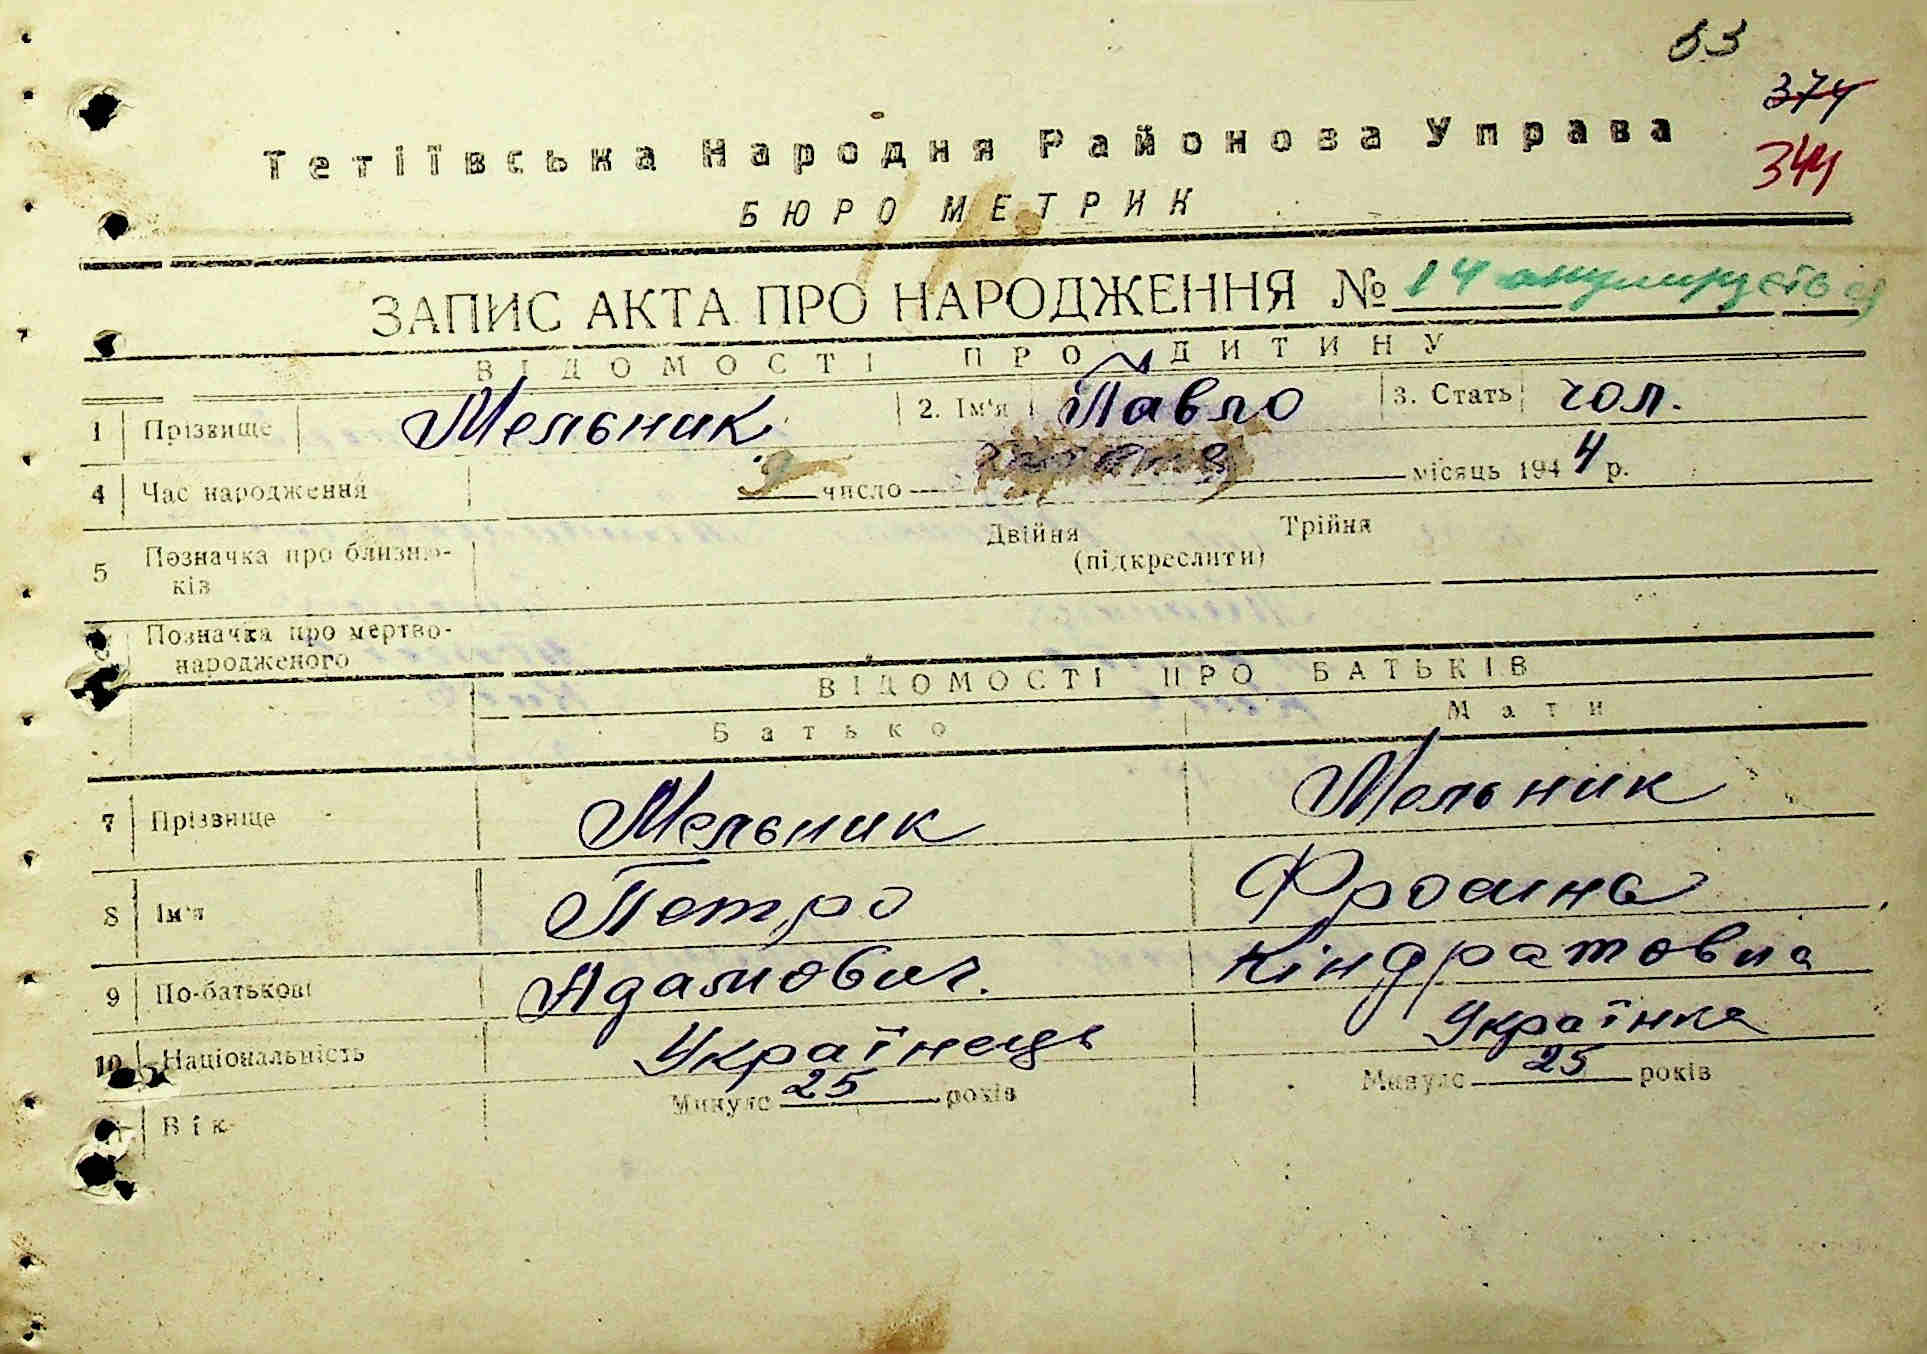 83
374
344
Тетіївська Народня Районова Управа
БЮРО МЕТРИК
ЗАПИС АКТА ПРО НАРОДЖЕННЯ № 14 анулирується
ВІДОМОСТІ ПРО ДИТИНУ
1 Прізвище Мельник 2. Ім'я Павло 3. Стать чол.
4 Час народження 9 число місяць 1944 р.
5 Позначка про близнюків Двійня Трійня
(підкреслити)
Позначка про мертвонародженого
ВІДОМОСТІ ПРО БАТЬКІВ
Батько Мати
7 Прізвище Мельник Мельник
8 Ім'я Петро
9 По-батькові Адамович. Кіндратовна
10 Національність Українець Українка
Вік Минуло 25 років Минуло 25 років